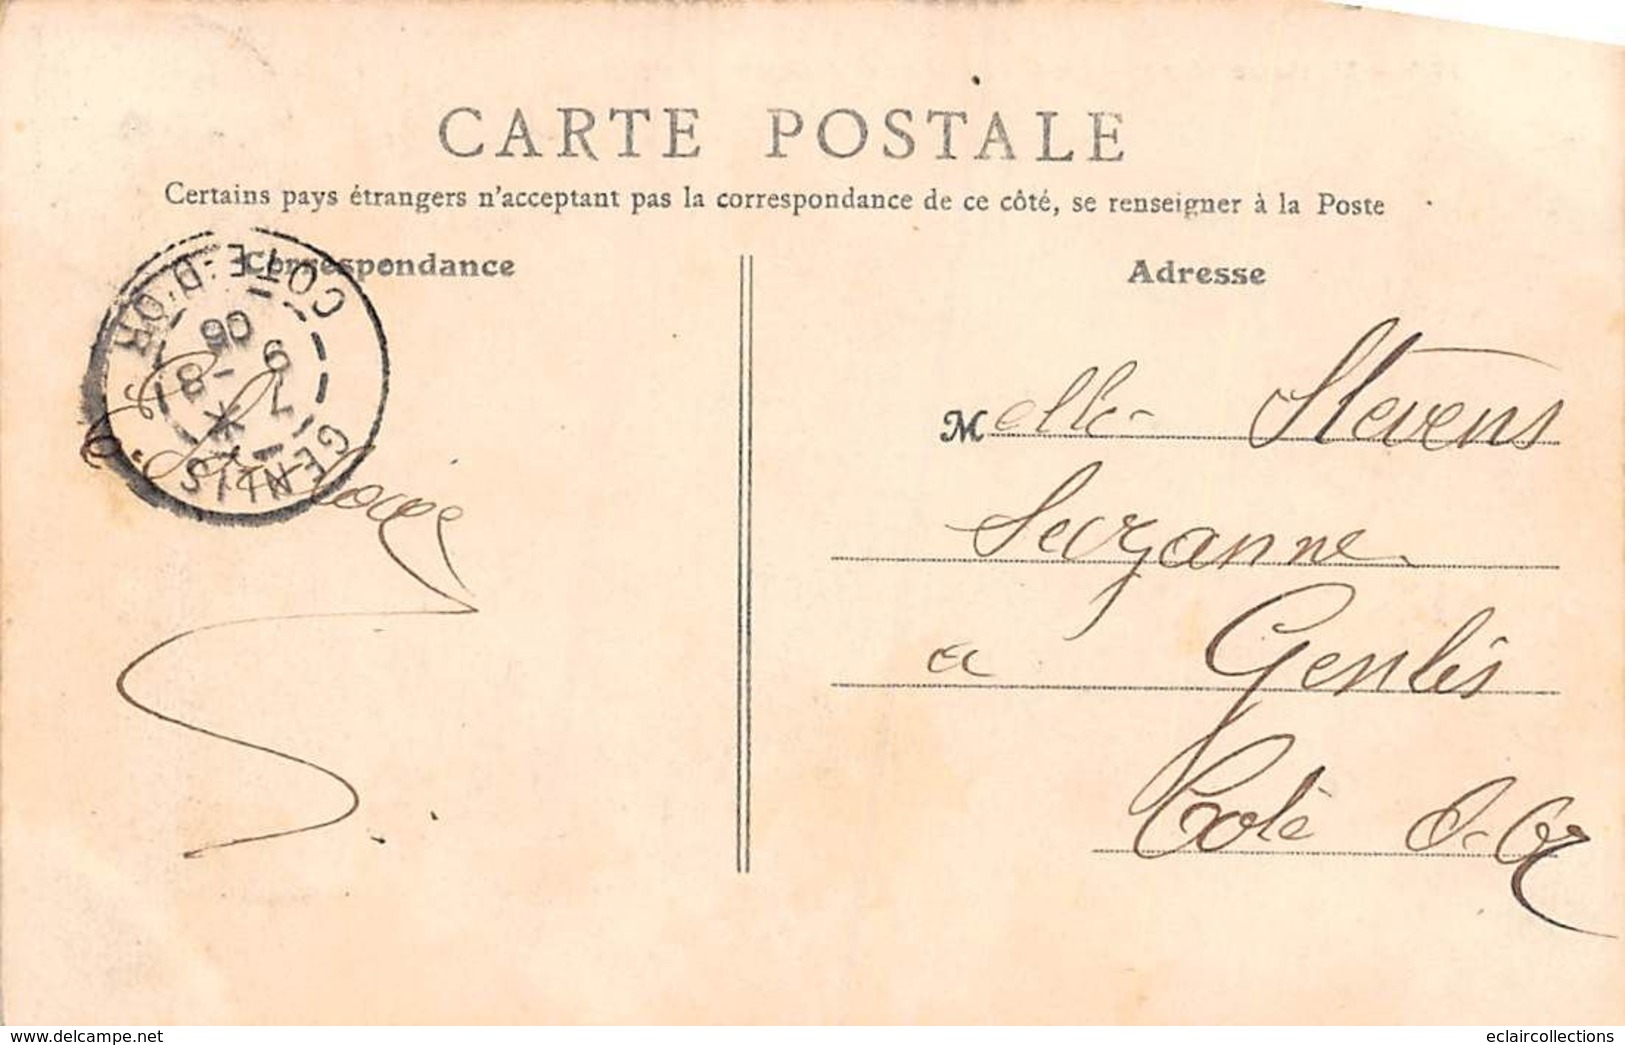 CARTE POSTALE
Certains pays étrangers n'acceptant pas la correspondance de ce côté, se renseigner à la Poste
Correspondance
Adresse
GENLIS
COTE-D'OR
7
9 -8
06
Melle Stevens
Suzanne
a Genlis
Côte d-Or
delcampe.net
eclaircollections